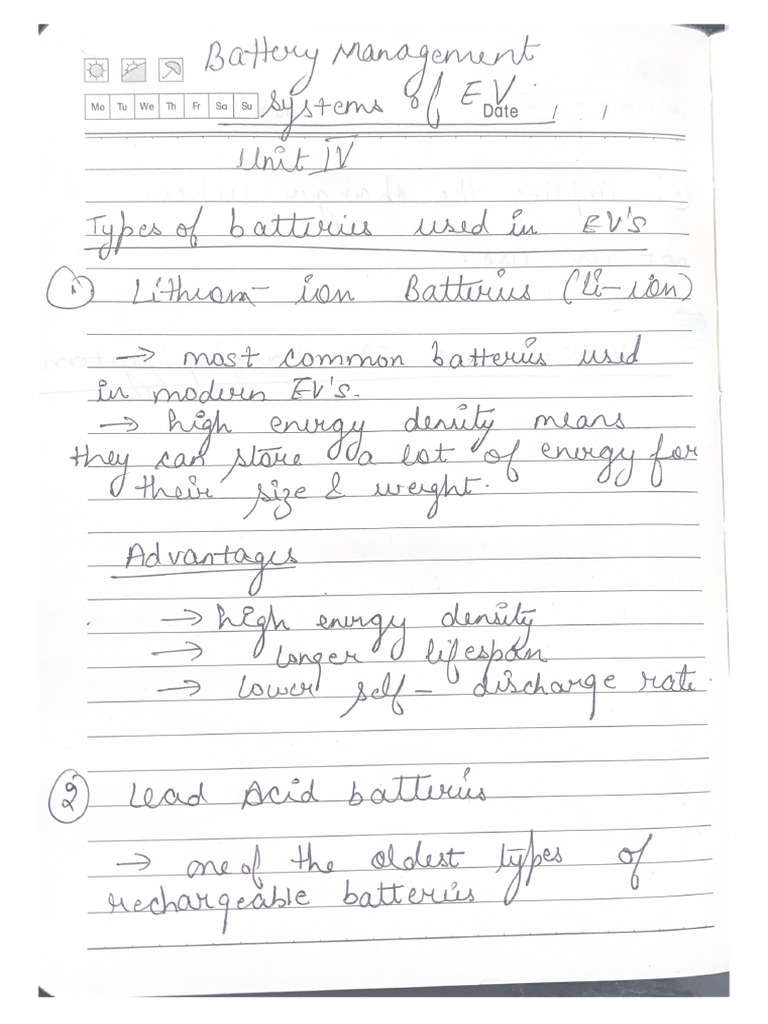 Battery Management
Mo Tu We Th Fr Sa Su Systems of EV Date / /
Unit IV
Types of batteries used in EV's
① Lithuom- ion Batteries (Li-ion)
→ most common batteries used
in modern EV's.
→ high energy density means
they can store a lot of energy for
their size & weight.
Advantages
→ high energy density
→ longer lifespan
→ lower self- discharge rate.
② Lead Acid batteries
→ one of the oldest types of
rechargeable batteries